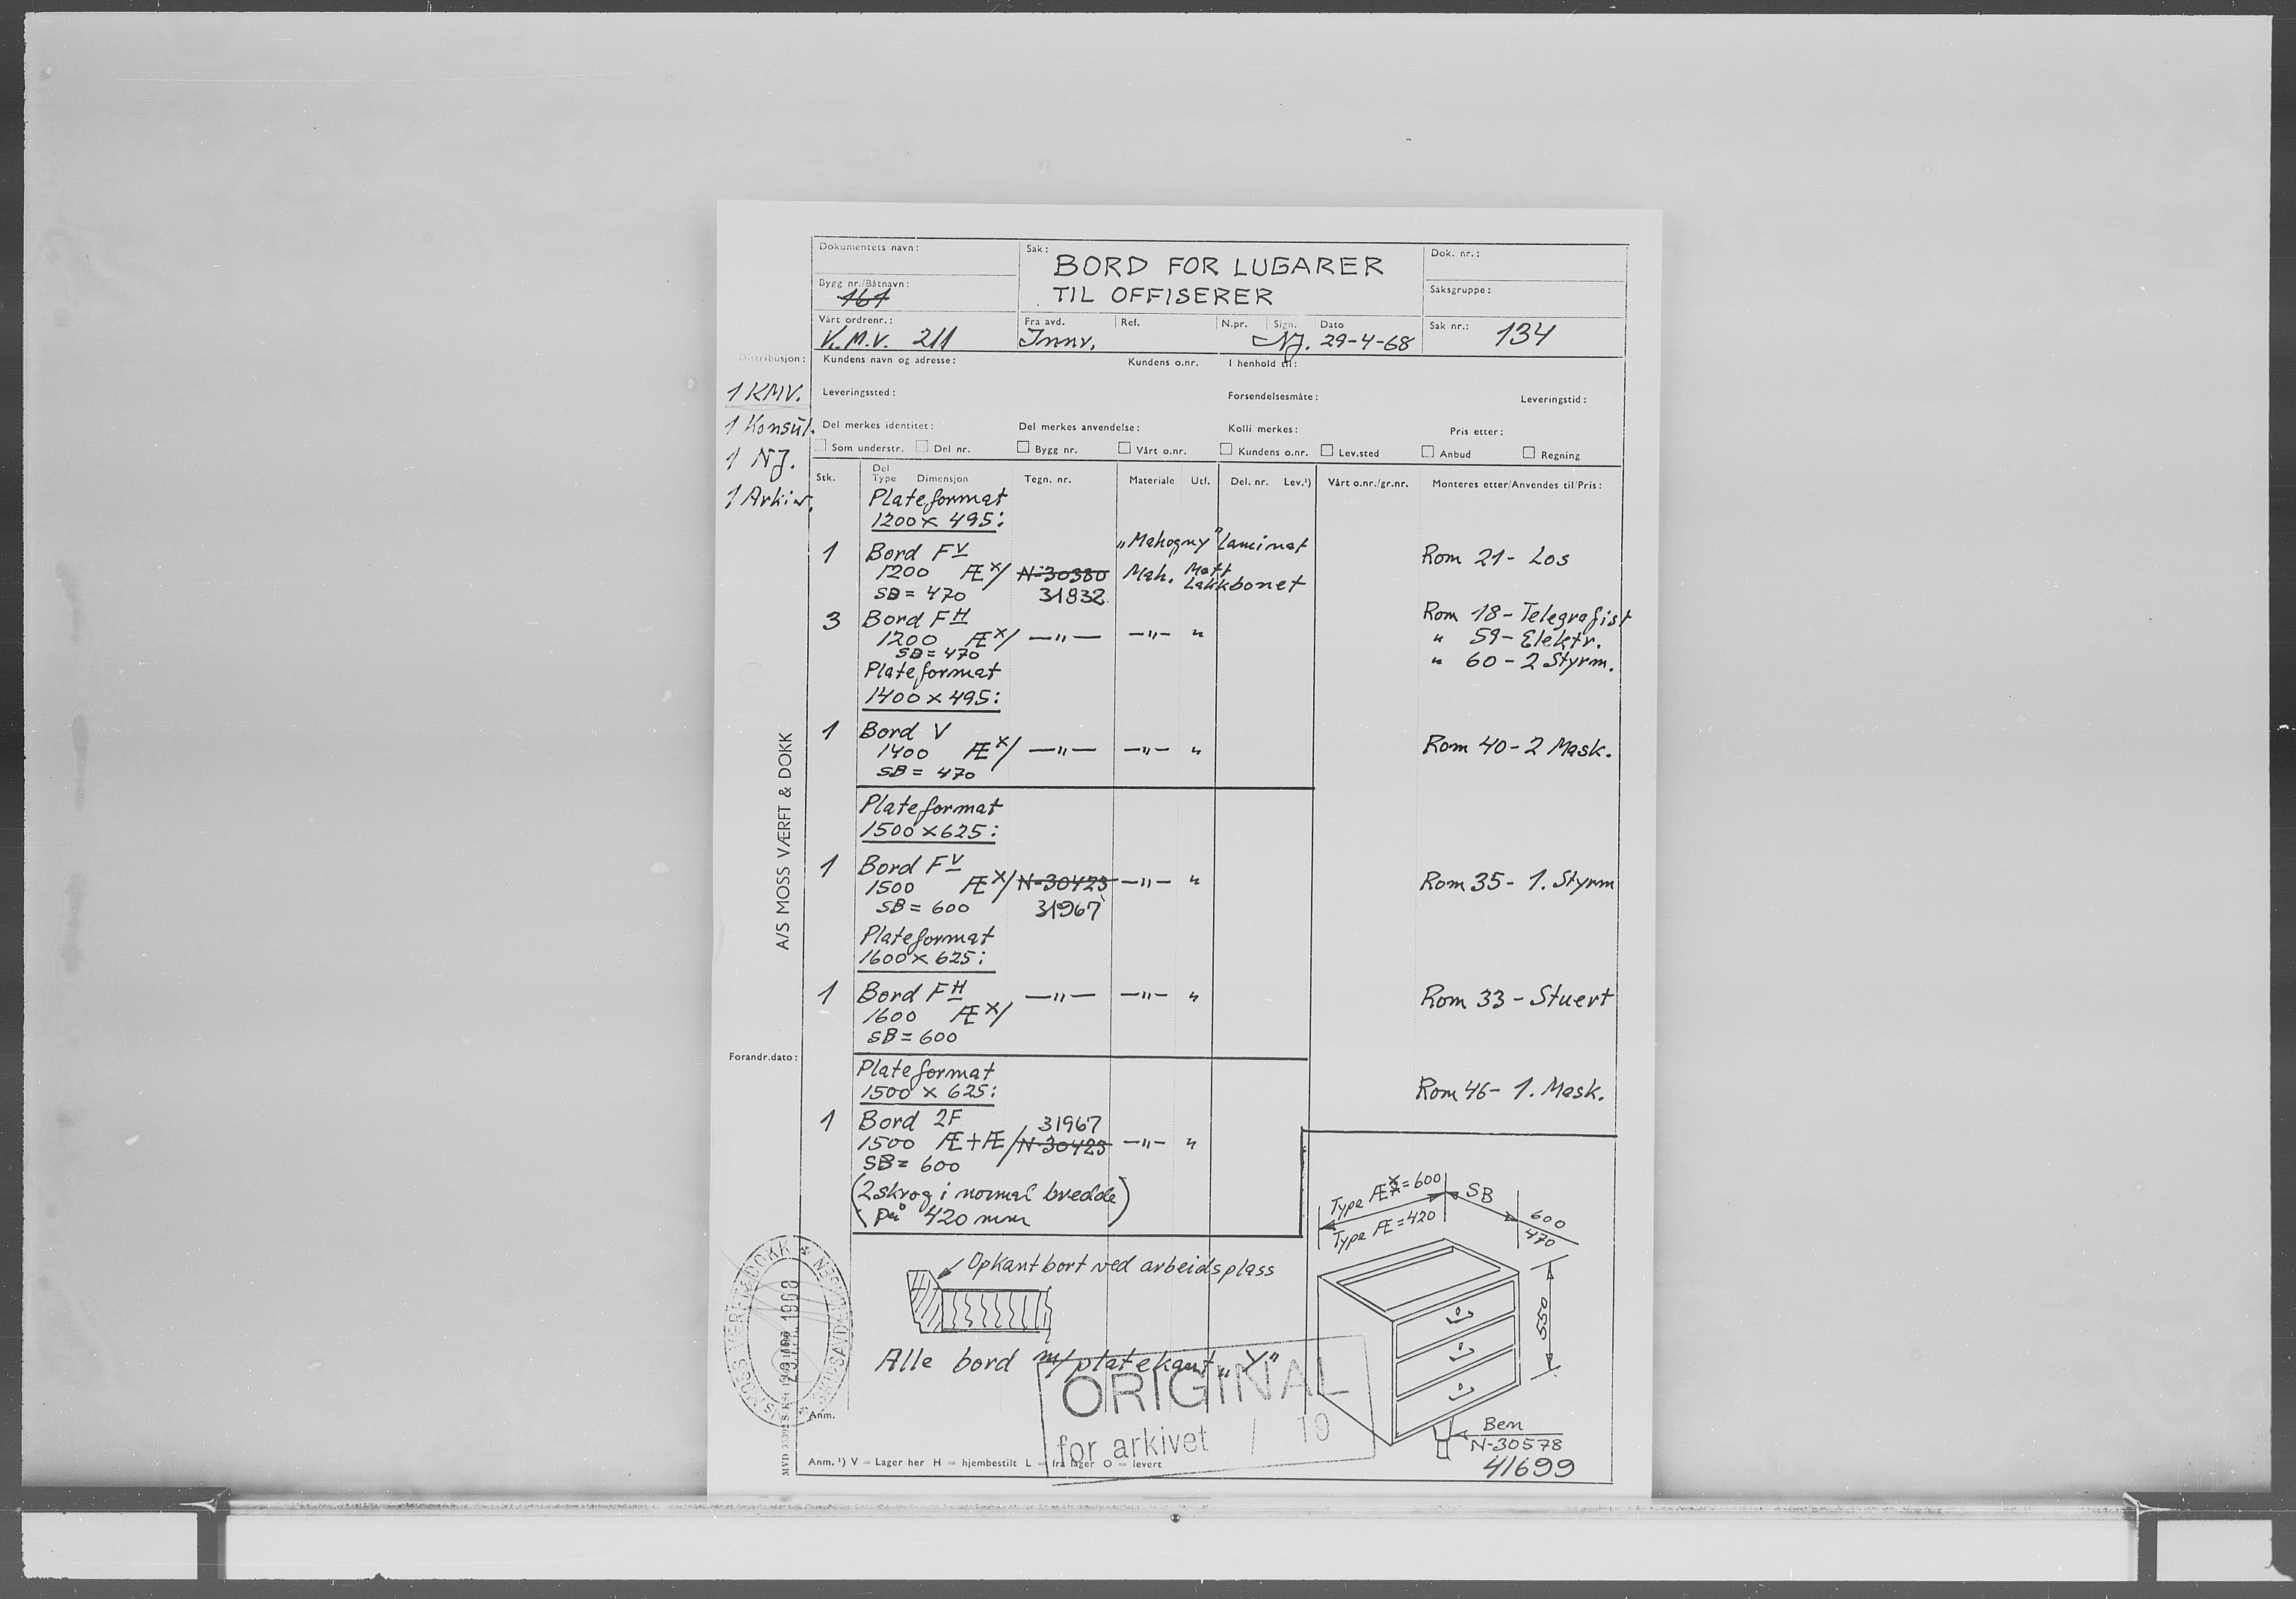 Dokumentets navn:
Sak:
BORD FOR LUGARER
TIL OFFISERER
Dok. nr.:
Bygg nr./Båtnavn:
161
Saksgruppe:
Vårt ordrenr.:
K.M.V. 211
Fra avd.
Innr.
Ref.
N.pr.
Sign.
NJ.
Dato
29-4-68
Sak nr.: 134
Distribusjon:
1 KMV.
1 Konsul.
1 NJ.
1 Arkiv.
Kundens navn og adresse:
Kundens o.nr.
I henhold til:
Leveringssted:
Forsendelsesmåte:
Leveringstid:
Del merkes identitet:
Del merkes anvendelse:
Kolli merkes:
Pris etter:
Som understr. Del nr. Bygg nr. Vårt o.nr. Kundens o.nr. Lev.sted Anbud Regning
Stk. Del Type Dimensjon Tegn. nr. Materiale Utf. Del. nr. Lev.¹) Vårt o.nr./gr.nr. Monteres etter/Anvendes til/Pris:
Plateformat
1200 x 495:
"Mahogny" laminat
1 Bord FV Rom 21 - Los
1200 Æ x/ N-30380 Mah. Matt
SB = 470 31932 Lakkbonet
3 Bord FH Rom 18 - Telegrafist
1200 Æ x/ —"— —"— " " 59 - Elektr.
SB = 470 " 60 - 2 Styrm.
Plateformat
1400 x 495:
1 Bord V
1400 Æ x/ —"— —"— " Rom 40 - 2 Mask.
SB = 470
Plateformat
1500 x 625:
1 Bord FV
1500 Æ x/ N-30423 —"— " Rom 35 - 1. Styrm
SB = 600 31967
Plateformat
1600 x 625:
1 Bord FH —"— —"— " Rom 33 - Stuert
1600 Æ x/
SB = 600
Plateformat
1500 x 625: Rom 46 - 1. Mask.
1 Bord 2F 31967
1500 Æ+Æ/ N-30423 —"— "
SB = 600
(2 skrog i normal bredde
på 420 mm)
A/S MOSS VÆRFT & DOKK
Forandr.dato:
Type Æx = 600
Type Æ = 420
SB
600
470
550
Opkant bort ved arbeidsplass
Alle bord m/platekant "Y"
ORIGINAL
for arkivet / 19
Ben
N-30578
41699
Anm.
Anm. ¹) V = Lager her H = hjembestilt L = fra lager O = levert